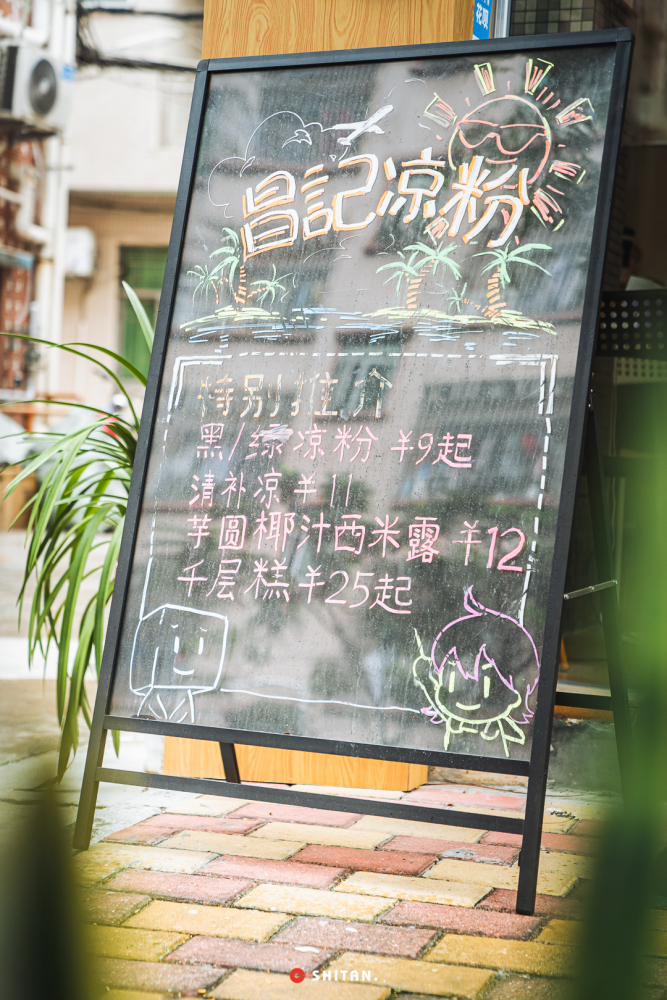 昌記凉粉
特别推介
黑/绿凉粉 ¥9起
清补凉 ¥11
芋圆椰汁西米露 ¥12
千层糕 ¥25起
SHITAN.